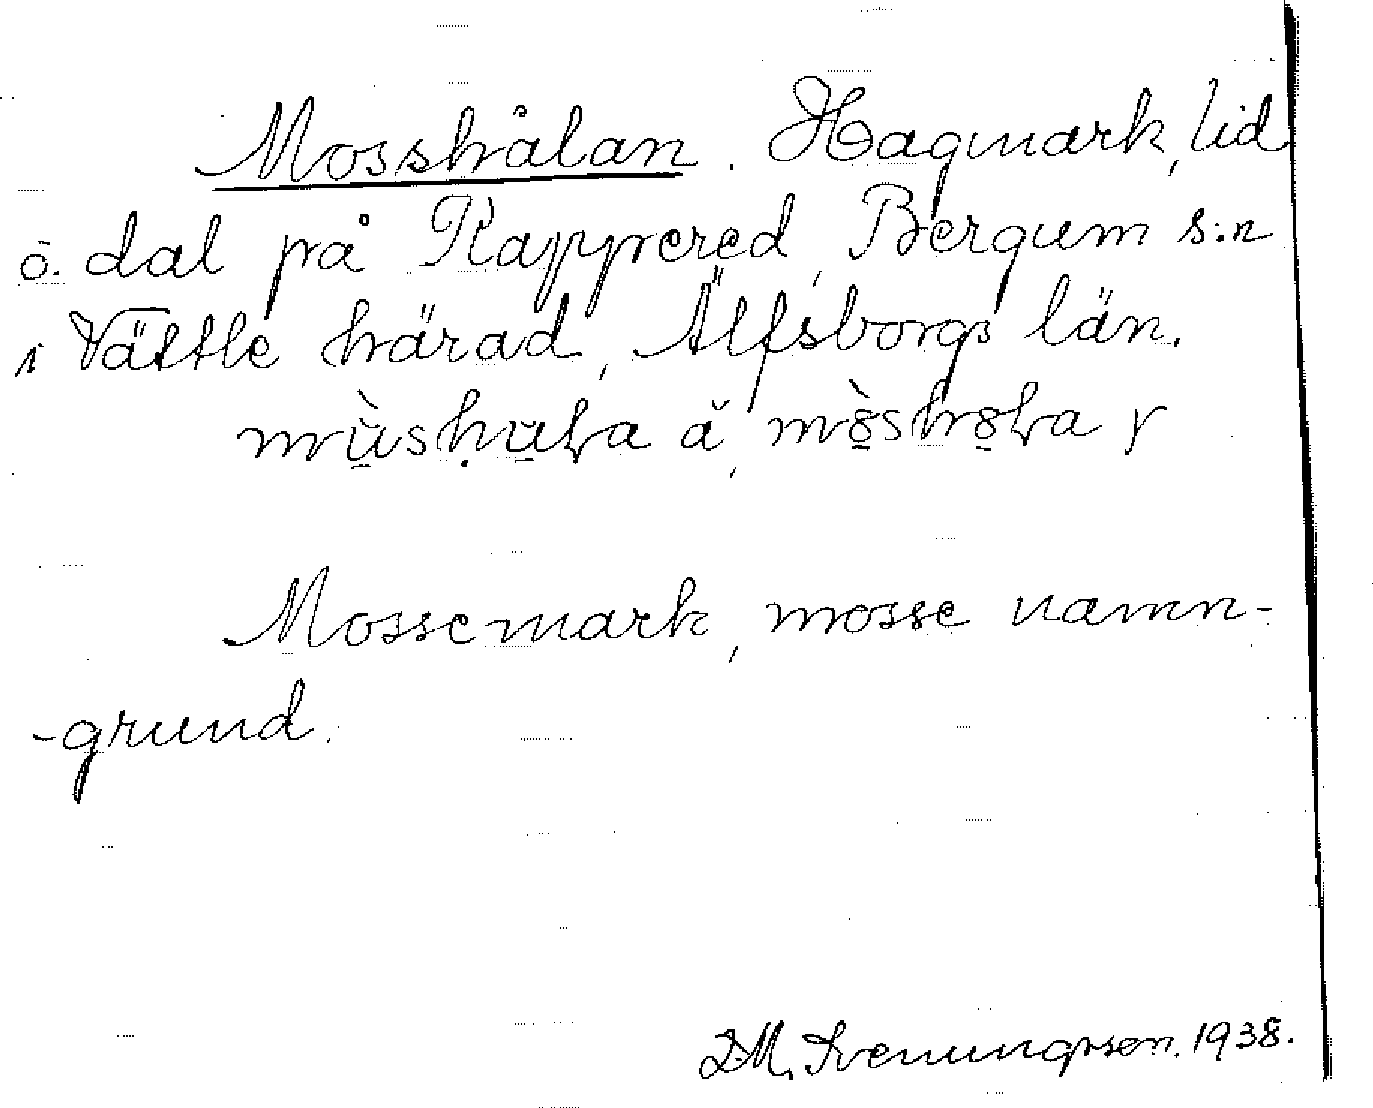 Mosshålan. Hagmark, lid
o. dal på Rappered, Bergum s:n
i Vättle härad, Älfsborgs län.
Mossemark, mosse namn-
-grund.
D.M. Svenungsson. 1938.